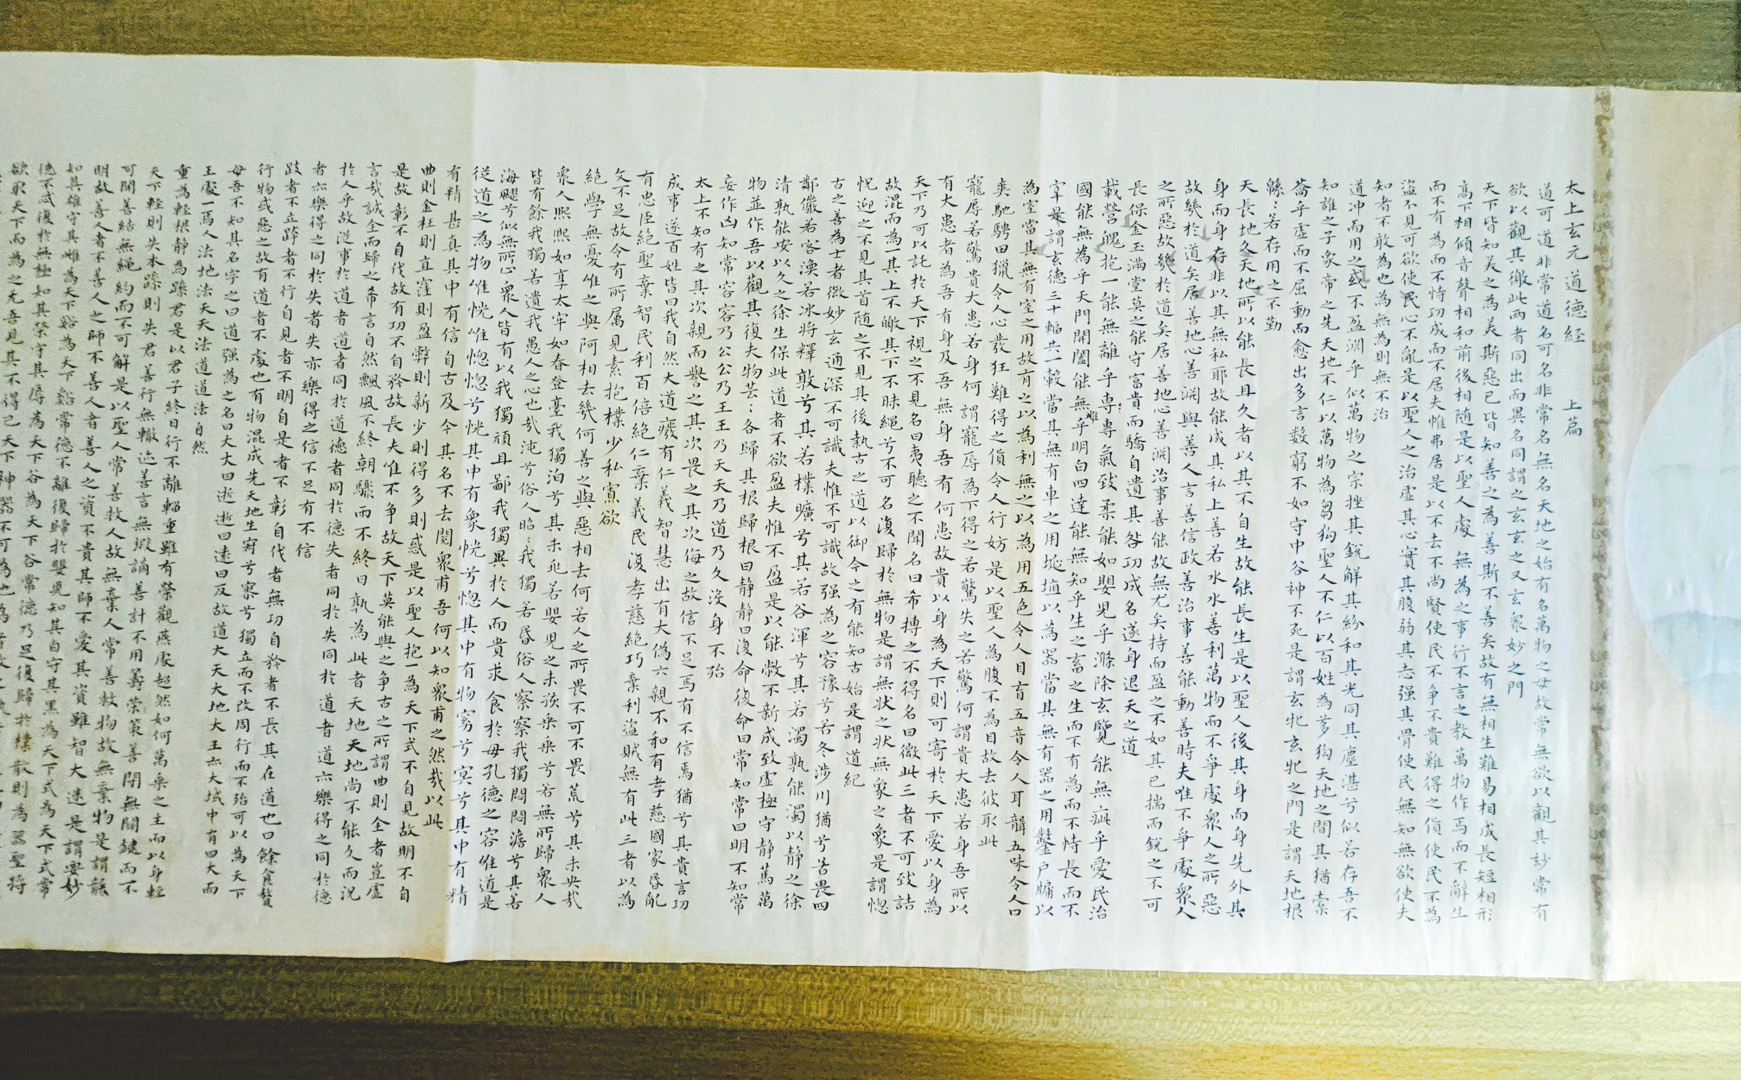 太上玄元道德經　上篇
道可道非常道名可名非常名無名天地之始有名萬物之母故常無欲以觀其妙常有
欲以觀其徼此兩者同出而異名同謂之玄玄之又玄衆妙之門
天下皆知美之為美斯惡已皆知善之為善斯不善矣故有無相生難易相成長短相形
高下相傾音聲相和前後相隨是以聖人處無為之事行不言之教萬物作焉而不辭生
而不有為而不恃功成而不居夫惟弗居是以不去不尚賢使民不爭不貴難得之貨使民不為
盜不見可欲使民心不亂是以聖人之治虛其心實其腹弱其志强其骨使民無知無欲使夫
知者不敢為也為無為則無不治
道冲而用之或不盈淵乎似萬物之宗挫其銳解其紛和其光同其塵湛兮似若存吾不
知誰之子象帝之先天地不仁以萬物為芻狗聖人不仁以百姓為芻狗天地之間其猶橐
籥乎虛而不屈動而愈出多言數窮不如守中谷神不死是謂玄牝玄牝之門是謂天地根
緜緜若存用之不勤
天長地久天地所以能長且久者以其不自生故能長生是以聖人後其身而身先外其
身而身存非以其無私耶故能成其私上善若水水善利萬物而不爭處衆人之所惡
故幾於道矣居善地心善淵與善人言善信政善治事善能動善時夫唯不爭處衆人
之所惡故幾於道矣居善地心善淵治事善能故無尤矣持而盈之不如其已揣而銳之不可
長保金玉滿堂莫之能守富貴而驕自遺其咎功成名遂身退天之道
載營魄抱一能無離乎專氣致柔能如嬰兒乎滌除玄覽能無疵乎愛民治
國能無為乎天門開闔能無雌乎明白四達能無知乎生之畜之生而不有為而不恃長而不
宰是謂玄德三十輻共一轂當其無有車之用埏埴以為器當其無有器之用鑿戶牖以
為室當其無有室之用故有之以為利無之以為用五色令人目盲五音令人耳聾五味令人口
爽馳騁田獵令人心發狂難得之貨令人行妨是以聖人為腹不為目故去彼取此
寵辱若驚貴大患若身何謂寵辱為下得之若驚失之若驚何謂貴大患若身吾所以
有大患者為吾有身及吾無身吾有何患故貴以身為天下則可寄於天下愛以身為
天下乃可以託於天下視之不見名曰夷聽之不聞名曰希搏之不得名曰微此三者不可致詰
故混而為其上不皦其下不昧繩兮不可名復歸於無物是謂無狀之狀無象之象是謂惚
怳迎之不見其首隨之不見其後執古之道以御今之有能知古始是謂道紀
古之善為士者微妙玄通深不可識夫惟不可識故强為之容豫兮若冬涉川猶兮若畏四
鄰儼若客渙若冰將釋敦兮其若樸曠兮其若谷渾兮其若濁孰能濁以靜之徐
清孰能安以久之徐生保此道者不欲盈夫惟不盈是以能敝不新成致虛極守靜篤萬
物並作吾以觀其復夫物芸芸各歸其根歸根曰靜靜曰復命復命曰常知常曰明不知常
妄作凶知常容容乃公公乃王王乃天天乃道乃久沒身不殆
太上不知有之其次親而譽之其次畏之其次侮之故信不足焉有不信焉猶兮其貴言功
成事遂百姓皆曰我自然大道廢有仁義智慧出有大偽六親不和有孝慈國家昏亂
有忠臣絕聖棄智民利百倍絕仁棄義民復孝慈絕巧棄利盜賊無有此三者以為
文不足故令有所属見素抱樸少私寡欲
絕學無憂唯之與阿相去幾何善之與惡相去何若人之所畏不可不畏荒兮其未央哉
衆人熙熙如享太牢如春登臺我獨泊兮其未兆若嬰兒之未孩乘乘兮若無所歸衆人
皆有餘我獨若遺我愚人之心也哉沌兮俗人昭昭我獨若昏俗人察察我獨悶悶澹兮其若
海飂兮似無所止衆人皆有以我獨頑且鄙我獨異於人而貴求食於母孔德之容惟道是
從道之為物惟恍惟惚惚兮恍其中有象恍兮惚其中有物窈兮冥兮其中有精
有精甚真其中有信自古及今其名不去閱衆甫吾何以知衆甫之然哉以此
曲則全枉則直窪則盈弊則新少則得多則惑是以聖人抱一為天下式不自見故明不自
是故彰不自伐故有功不自矜故長夫惟不爭故天下莫能與之爭古之所謂曲則全者豈虛
言哉誠全而歸之希言自然飄風不終朝驟雨不終日孰為此者天地天地尚不能久而況
於人乎故從事於道者道者同於道德者同於德失者同於失同於道者道亦樂得之同於德
者亦樂得之同於失者失亦樂得之信不足有不信
跂者不立跨者不行自見者不明自是者不彰自伐者無功自矜者不長其在道也曰餘食贅
行物或惡之故有道者不處也有物混成先天地生寂兮寞兮獨立而不改周行而不殆可以為天下
母吾不知其名字之曰道强為之名曰大大曰逝逝曰遠遠曰反故道大天大地大王亦大域中有四大而
王處一焉人法地地法天天法道道法自然
重為輕根靜為躁君是以君子終日行不離輜重雖有榮觀燕處超然如何萬乘之主而以身輕
天下輕則失本躁則失君善行無轍迹善言無瑕謫善計不用籌策善閉無關鍵而不
可開善結無繩約而不可解是以聖人常善救人故無棄人常善救物故無棄物是謂襲
明故善人者不善人之師不善人者善人之資不貴其師不愛其資雖智大迷是謂要妙
知其雄守其雌為天下谿為天下谿常德不離復歸於嬰兒知其白守其黑為天下式為天下式常
德不忒復歸於無極知其榮守其辱為天下谷為天下谷常德乃足復歸於樸樸散則為器聖將
欲取天下而為之吾見其不得已天下神器不可為也